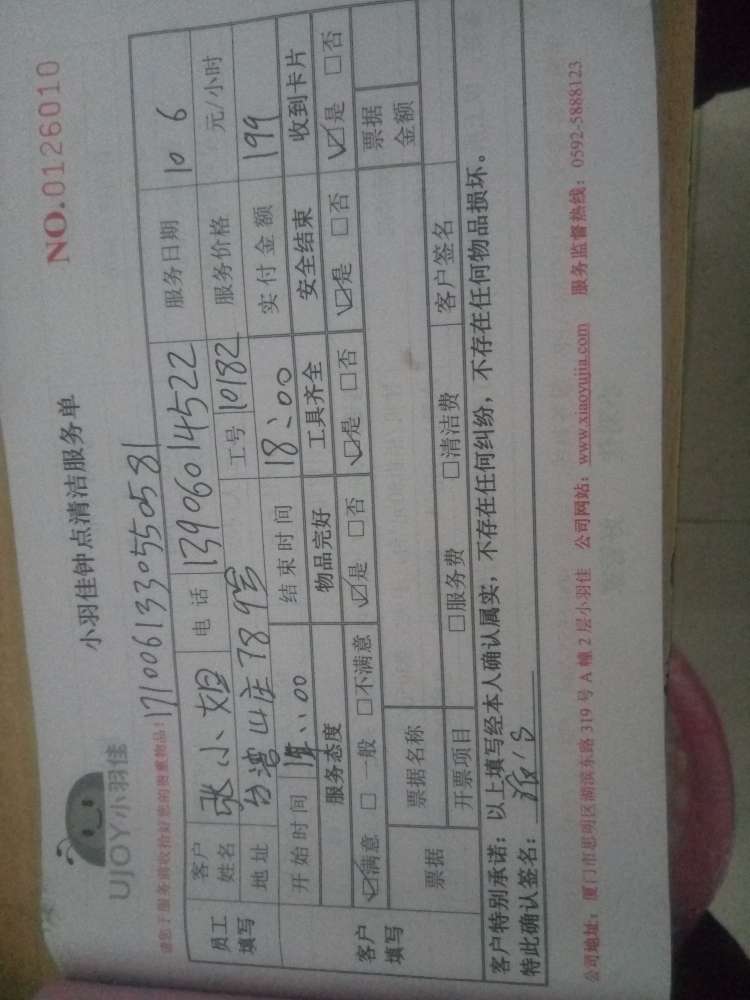 NO.0126010
小羽佳钟点清洁服务单
UJOY小羽佳
请您于服务前收拾好您的贵重物品!
17100613305581
员工填写 客户姓名 张小姐 电话 13906014522 服务日期 10 6
地址 台湾山庄789号 工号 10182 服务价格 元/小时
开始时间 :00 结束时间 18:00 实付金额 199
客户填写 服务态度 物品完好 工具齐全 安全结束 收到卡片
☑满意 □一般 □不满意 ☑是 □否 ☑是 □否 ☑是 □否 ☑是 □否
票据 票据名称 票据金额
开票项目 □服务费 □清洁费 客户签名
客户特别承诺:以上填写经本人确认属实,不存在任何纠纷,不存在任何物品损坏。
特此确认签名:
公司地址:厦门市思明区湖滨东路319号A幢2层小羽佳 公司网站:www.xiaoyujia.com 服务监督热线:0592-5888123